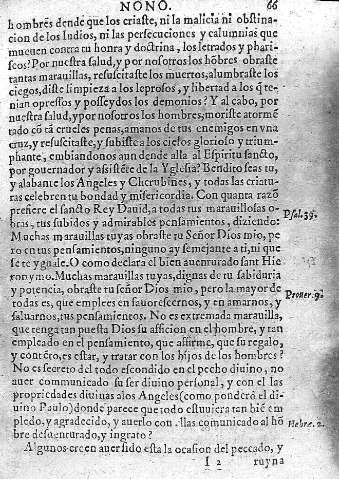 NONO. 66
hombres dende que los criaste, ni la malicia ni obstina
cion de los Iudios, ni las persecuciones y calumnias que
mueuen contra tu honra y doctrina, los letrados y phari
seos? Por nuestra salud, y por nosotros los hõbres obraste
tantas marauillas, resuscitaste los muertos, alumbraste los
ciegos, diste limpieza a los leprosos, y libertad a los q̃ te-
nian opressos y posseydos los demonios? Y al cabo, por
nuestra salud, y por nosotros los hombres, moriste atormē
tado cō tā crueles penas, a manos de tus enemigos en vna
cruz, y resuscitaste, y subiste a los cielos glorioso y trium-
phante, embiandonos aun dende alla al Espiritu sancto,
por gouernador y assistēte de la Yglesia? Bendito seas tu,
y alabante los Angeles y Cherubines, y todas las criatu
ras celebren tu bondad y misericordia. Con quanta razō
prefiere el sancto Rey Dauid, a todas tus marauillosas o-
bras, tus subidos y admirables pensamientos, diziendo:
Psal. 39.
Muchas marauillas tuyas obraste tu Señor Dios mio, pe
ro en tus pensamientos, ninguno ay semejante a ti, ni que
se te yguale. O como declara el bien auenturado sant Hie
ronymo. Muchas marauillas tuyas, dignas de tu sabiduria
y potencia, obraste tu señor Dios mio, pero la mayor de
todas es, que emplees en fauorescernos, y en amarnos, y
Prouer. 8.
saluarnos, tus pensamientos. No es extremada marauilla,
que tenga tan puesta Dios su afficion en el hombre, y tan
empleado en el pensamiento, que affirme, que su regalo,
y contēto, es estar, y tratar con los hijos de los hombres?
No es secreto del todo escondido en el pecho diuino, no
auer communicado su ser diuino personal, y con el las
propriedades diuinas a los Angeles (como ponderò el di
uino Paulo) donde parece que todo estuuiera tan biē em
pledo, y agradecido, y auerlo con illas comunicado al hō
Hebre. 2.
bre desuenturado, y ingrato?
Algunos creen auer sido esta la ocasion del peccado, y
I 2 ruyna